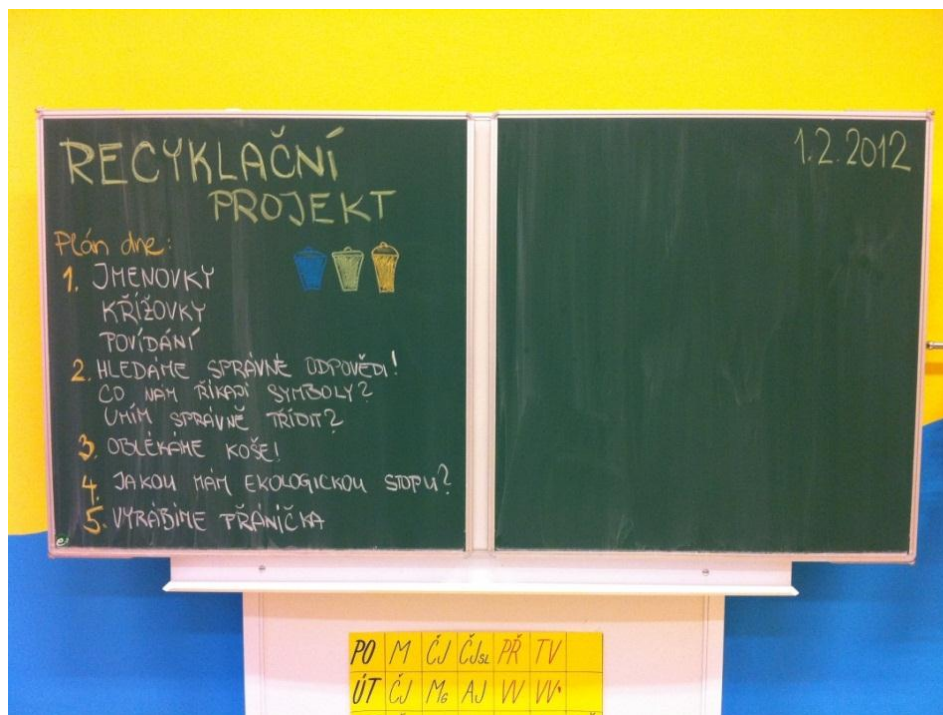 RECYKLAČNÍ
PROJEKT
1.2.2012
Plán dne:
1. JMENOVKY
KŘÍŽOVKY
POVÍDÁNÍ
2. HLEDÁME SPRÁVNÉ ODPOVĚDI!
CO NÁM ŘÍKAJÍ SYMBOLY?
UMÍM SPRÁVNĚ TŘÍDIT?
3. OBLÉKÁME KOŠE!
4. JAKOU MÁM EKOLOGICKOU STOPU?
5. VYRÁBÍME PŘÁNÍČKA
PO M ČJ ČJSL PŘ TV
ÚT ČJ MG AJ VV VV